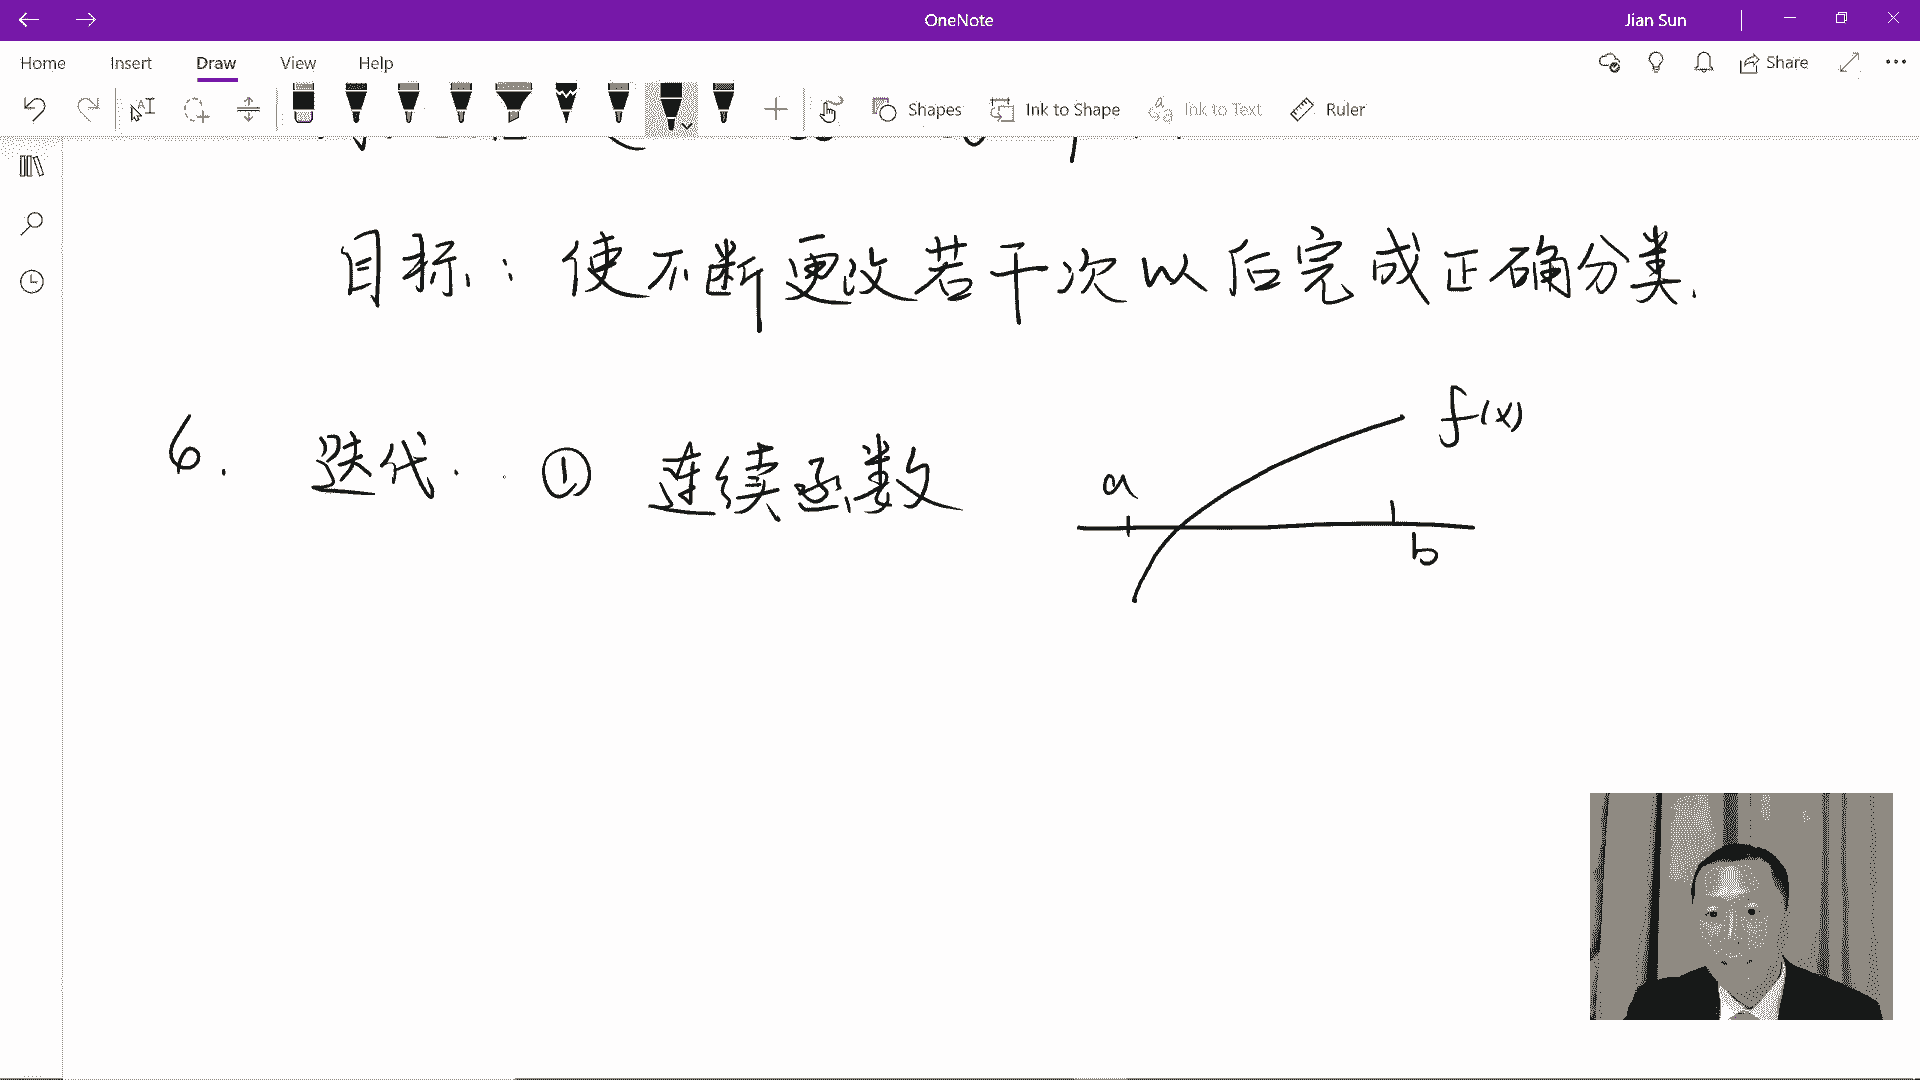 OneNote
Jian Sun
Home Insert Draw View Help
Share
Shapes Ink to Shape Ink to Text Ruler
目标：使不断更改若干次以后完成正确分类.
6. 迭代. ① 连续函数
f(x)
a
b